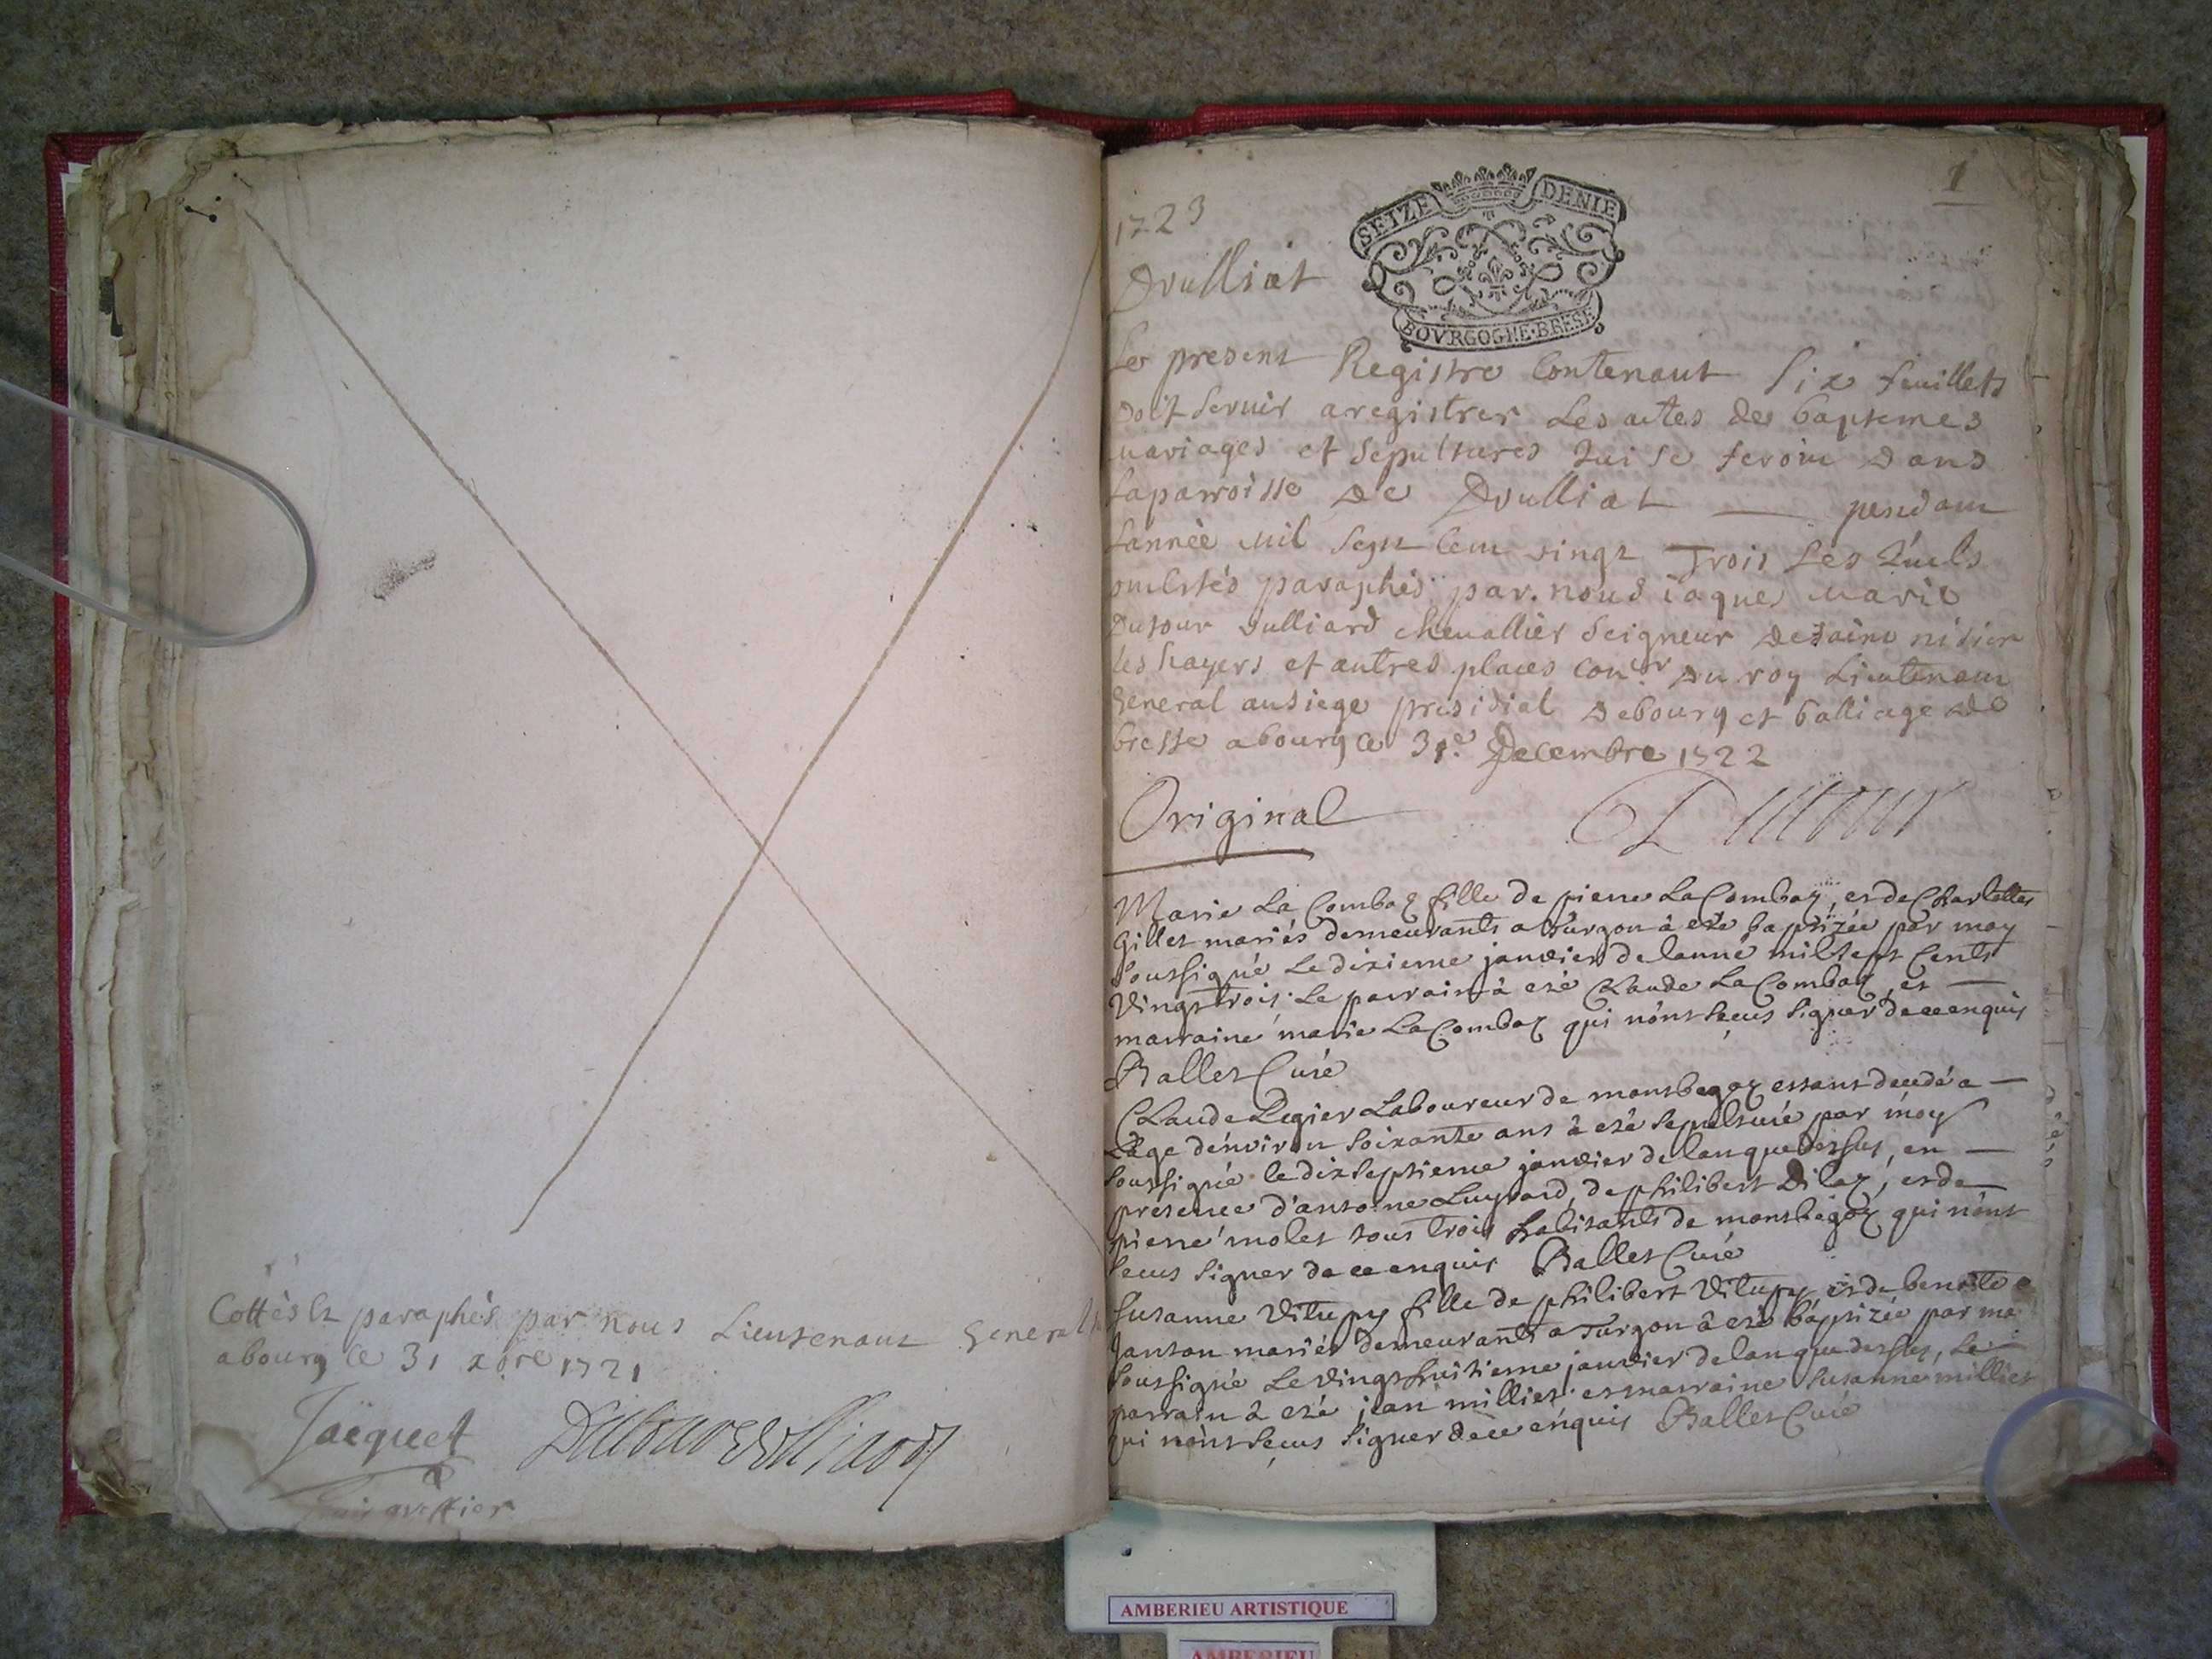 Cottés et paraphés par nous Lieutenant general
a bourg ce 31 xbre 1721
Jacquet
greffier
1723
1
SEIZE DENIE
BOVRGOGNE·BRESE
Drulliat
Le present Registre Contenant six feuillets
Doit servir a registrer Les actes de baptemes
mariages et sepultures qui se feront dans
La parroisse de Drulliat — pendant
L'année mil sept cent vingt Trois Les quels
paraphés par nous jaques marie
Dutour Vulliard chevallier seigneur de saint nisier
les hayers et autres places coner du roy Lieutenant
General au siege presidial de bourg et balliage de
bresse a bourg ce 31e Decembre 1722
Original
Dutour
Marie La Combaz fille de pierre La Combaz, et de Charlotte
Gillet mariés demeurants a turgon à eté baptizée par moy
soussigné Le dixieme janvier de lanné mil sept cents
Vingt trois. Le parrain à eté Claude La Combaz et —
marraine marie La Combaz qui n'ont sçeus signer de ce enquis
Ballet Curé
Claude Legier Laboureur de montbegoz estant decedé a —
L'age d'environ soixante ans à eté sepulturé par moy
soussigné le dixseptieme janvier de lan que dessus, en —
presence d'antoine Luyssard, de philibert Dilaz, et de
pierre molet tous trois habitants de montbegoz qui n'ont
sceus signer de ce enquis Ballet Curé
Susanne Vitupy fille de philibert Vitupy et de benoite
Janton mariés demeurants a Turgon à eté baptizée par mo
soussigné Le vingt huitieme janvier de lan que dessus, Le
parrain à eté jean milliet et marraine Susanne milliet
qui n'ont sçeus signer de ce enquis Ballet Curé
AMBERIEU ARTISTIQUE
AMBERIEU